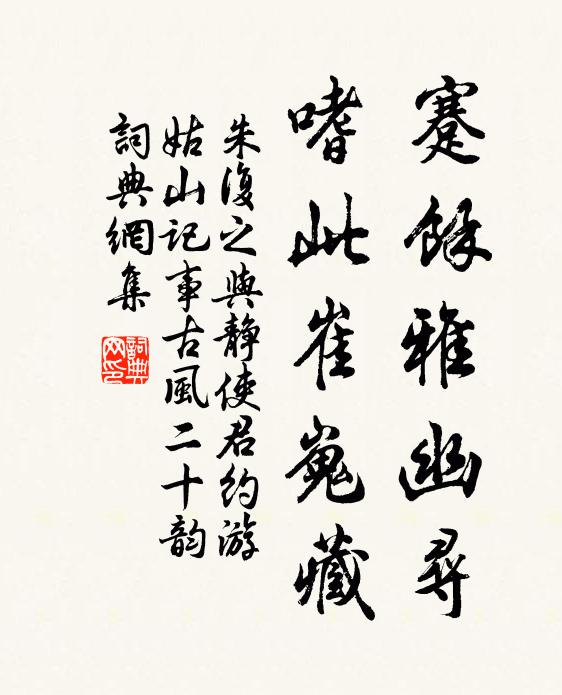 蹇餘雅幽尋
嗜此崔嵬藏
朱復之與静使君約游
姑山記事古風二十韵
詞典網集
詞典网印